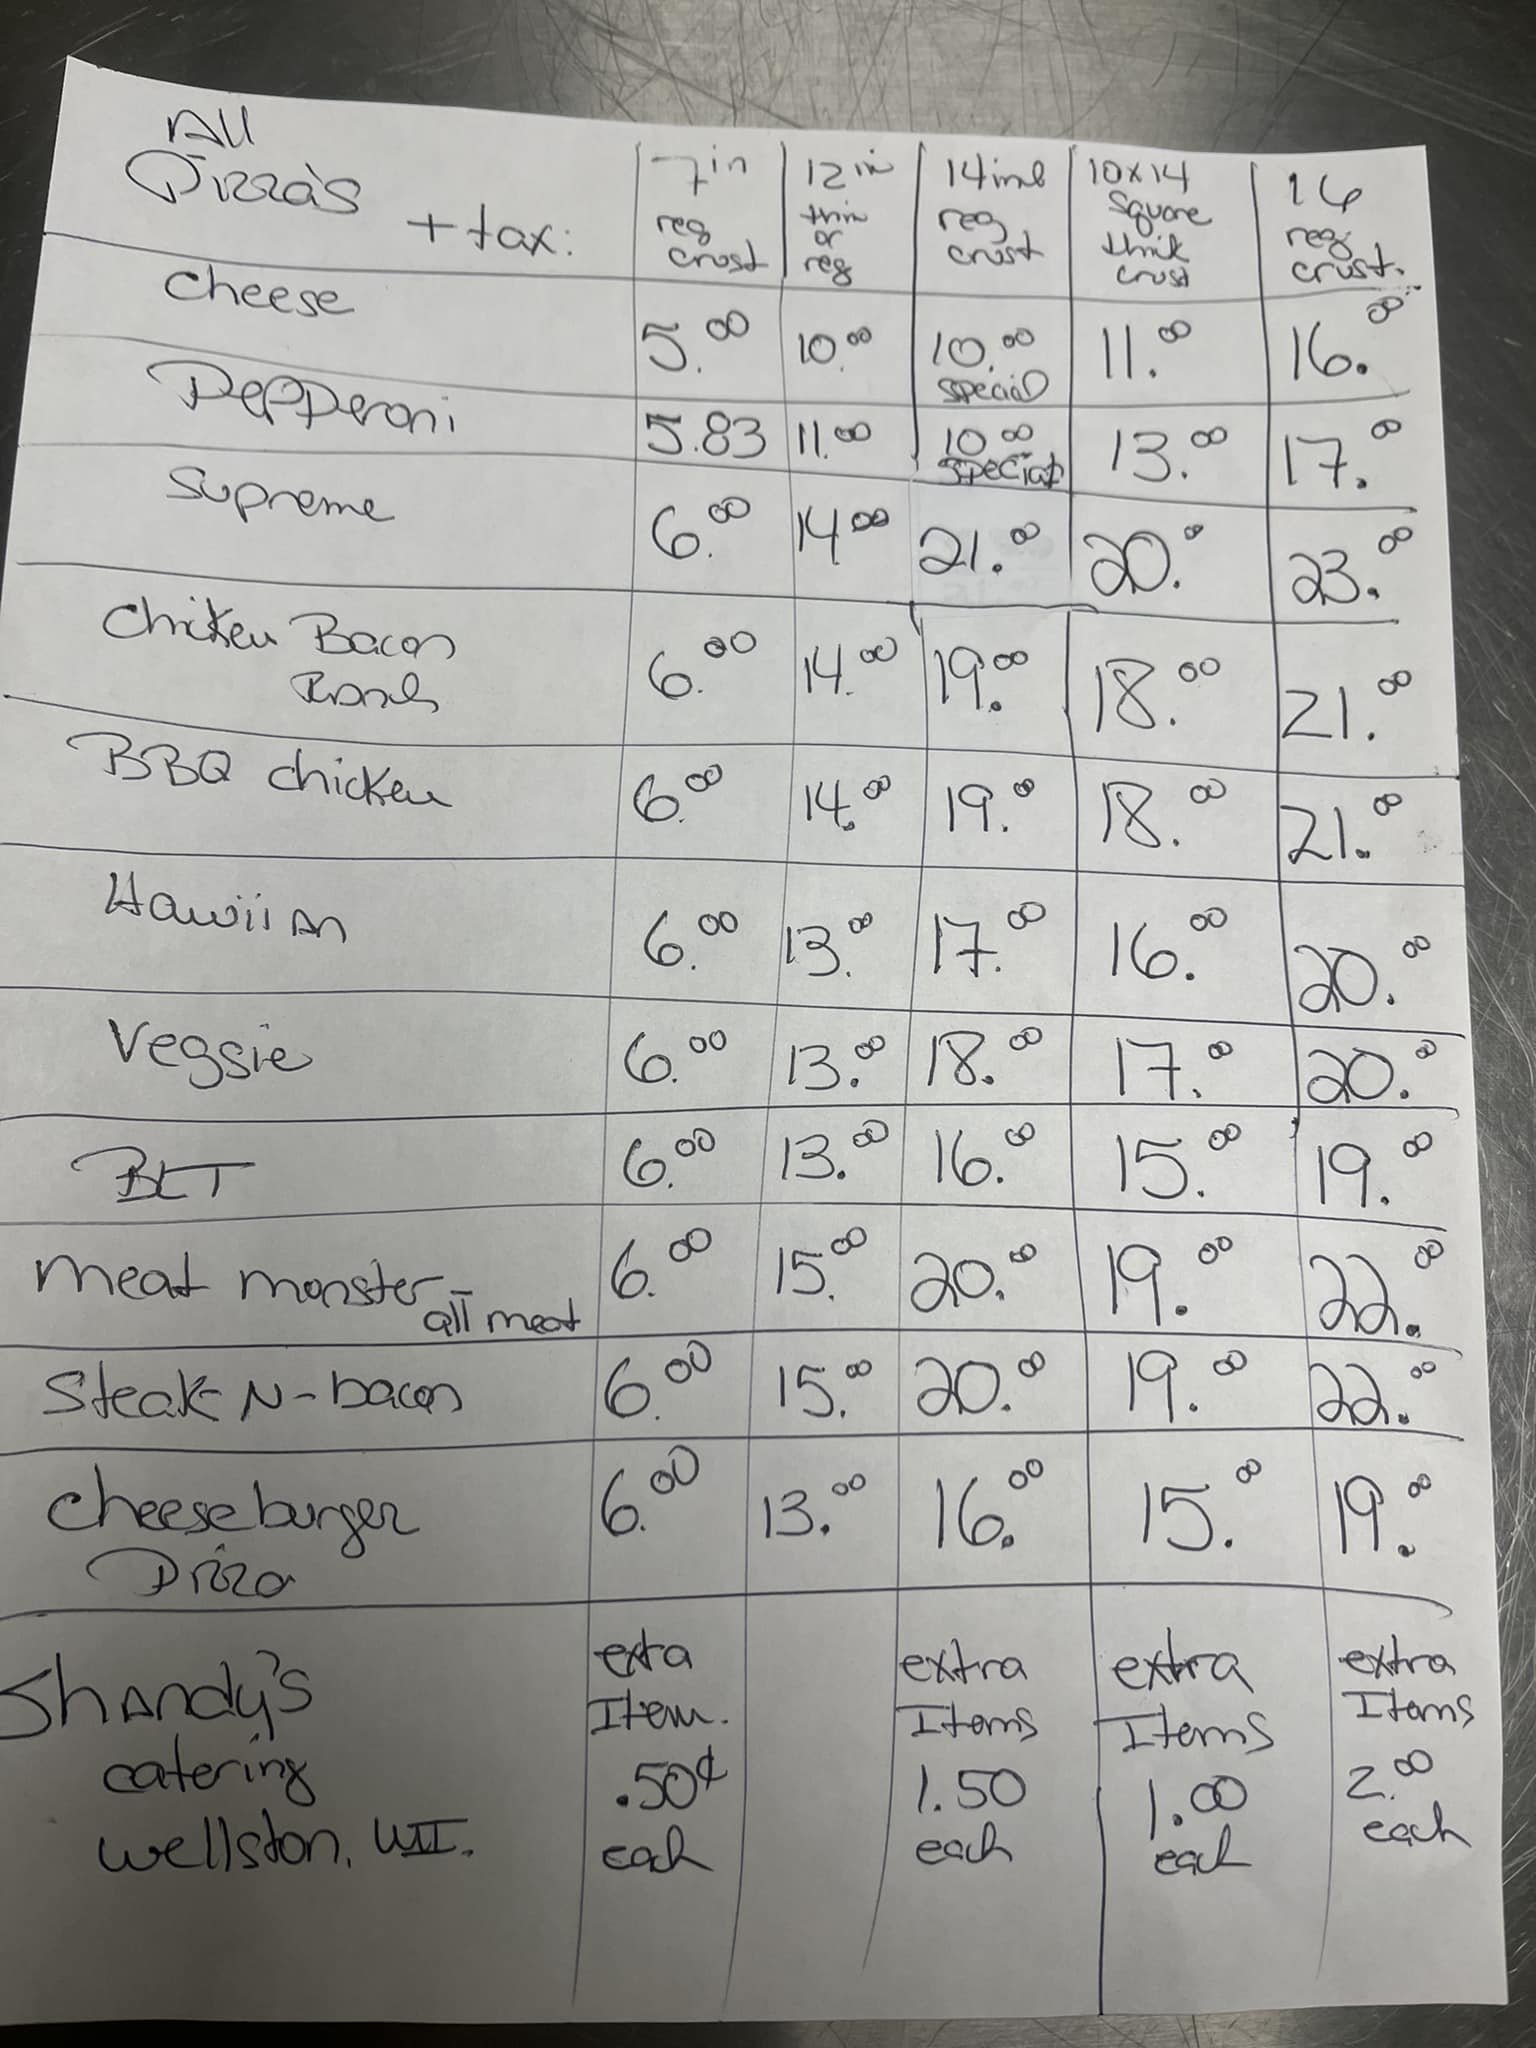 All
Pizza's + tax:
7 in reg crust
12 in thin or reg
14 inch reg crust
10x14 square thick crust
16 reg crust.
cheese 5.00 10.00 10.00 special 11.00 16.00
Pepperoni 5.83 11.00 10.00 special 13.00 17.00
Supreme 6.00 14.00 21.00 20.00 23.00
Chicken Bacon
Ranch 6.00 14.00 19.00 18.00 21.00
BBQ chicken 6.00 14.00 19.00 18.00 21.00
Hawiian 6.00 13.00 17.00 16.00 20.00
Veggie 6.00 13.00 18.00 17.00 20.00
BLT 6.00 13.00 16.00 15.00 19.00
meat monster -
all meat 6.00 15.00 20.00 19.00 22.00
Steak-N-bacon 6.00 15.00 20.00 19.00 22.00
Cheeseburger
Pizza 6.00 13.00 16.00 15.00 19.00
Shandy's
catering
wellston,
exta
Item.
.50¢
each
extra
Items
1.50
each
extra
Items
1.00
each
extra
Items
2.00
each